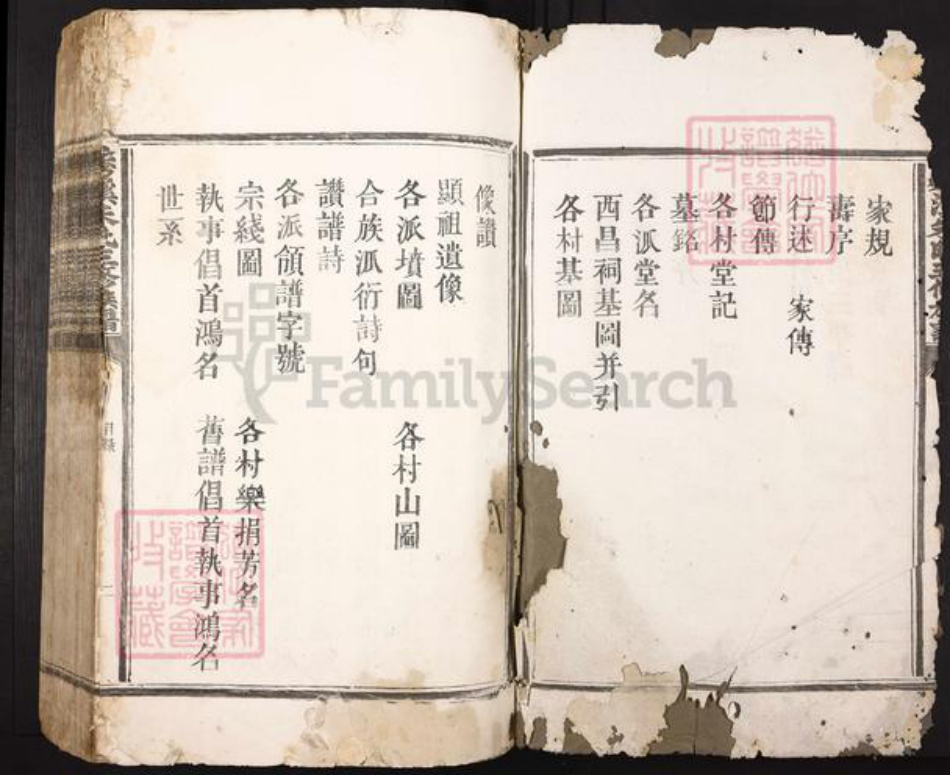 家規
壽序
行述 家傳
節傳
各村堂記
墓銘
各派堂名
西昌祠基圖并引
各村基圖
像讚
顯祖遺像
各派墳圖 各村山圖
合族派衍詩句
讚譜詩
各派頒譜字號
宗綫圖 各村樂捐芳名
執事倡首鴻名 舊譜倡首執事鴻名
世系
目錄
二
FamilySearch